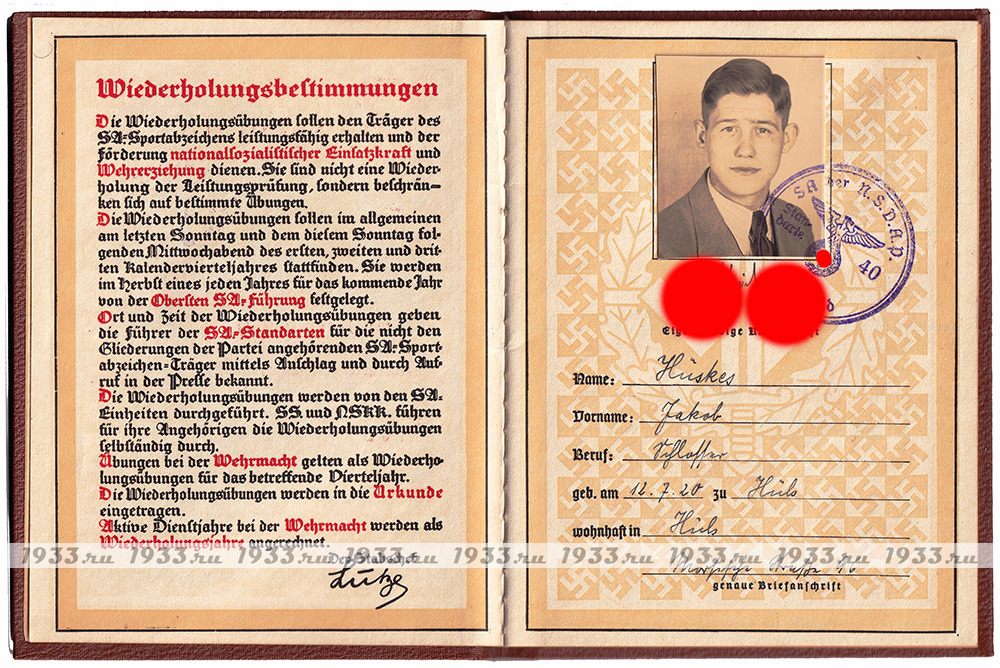 Wiederholungsbestimmungen
Die Wiederholungsübungen sollen den Träger des
SA-Sportabzeichens leistungsfähig erhalten und der
Förderung nationalsozialistischer Einsatzkraft und
Wehrerziehung dienen. Sie sind nicht eine Wieder-
holung der Leistungsprüfung, sondern beschrän-
ken sich auf bestimmte Übungen.
Die Wiederholungsübungen sollen im allgemeinen
am letzten Sonntag und dem diesem Sonntag fol-
genden Mittwochabend des ersten, zweiten und drit-
ten Kalendervierteljahres stattfinden. Sie werden
im Herbst eines jeden Jahres für das kommende Jahr
von der Obersten SA-Führung festgelegt.
Ort und Zeit der Wiederholungsübungen geben
die Führer der SA-Standarten für die nicht den
Gliederungen der Partei angehörenden SA-Sport-
abzeichen-Träger mittels Anschlag und durch Auf-
ruf in der Presse bekannt.
Die Wiederholungsübungen werden von den SA-
Einheiten durchgeführt. SS. und NSKK. führen
für ihre Angehörigen die Wiederholungsübungen
selbständig durch.
Übungen bei der Wehrmacht gelten als Wiederho-
lungsübungen für das betreffende Vierteljahr.
Die Wiederholungsübungen werden in die Urkunde
eingetragen.
Aktive Dienstjahre bei der Wehrmacht werden als
Wiederholungsjahre angerechnet.
Der Stabschef:
Lutze
SA der N.S.D.A.P.
Stan
darte
40
Name: Hüskes
Vorname: Jakob
Beruf: Schlosser
geb. am 12.7.20 zu Hüls
wohnhaft in Hüls
Straße 46
genaue Briefanschrift
1933.ru 1933.ru 1933.ru 1933.ru 1933.ru 1933.ru 1933.ru 1933.ru 1933.ru